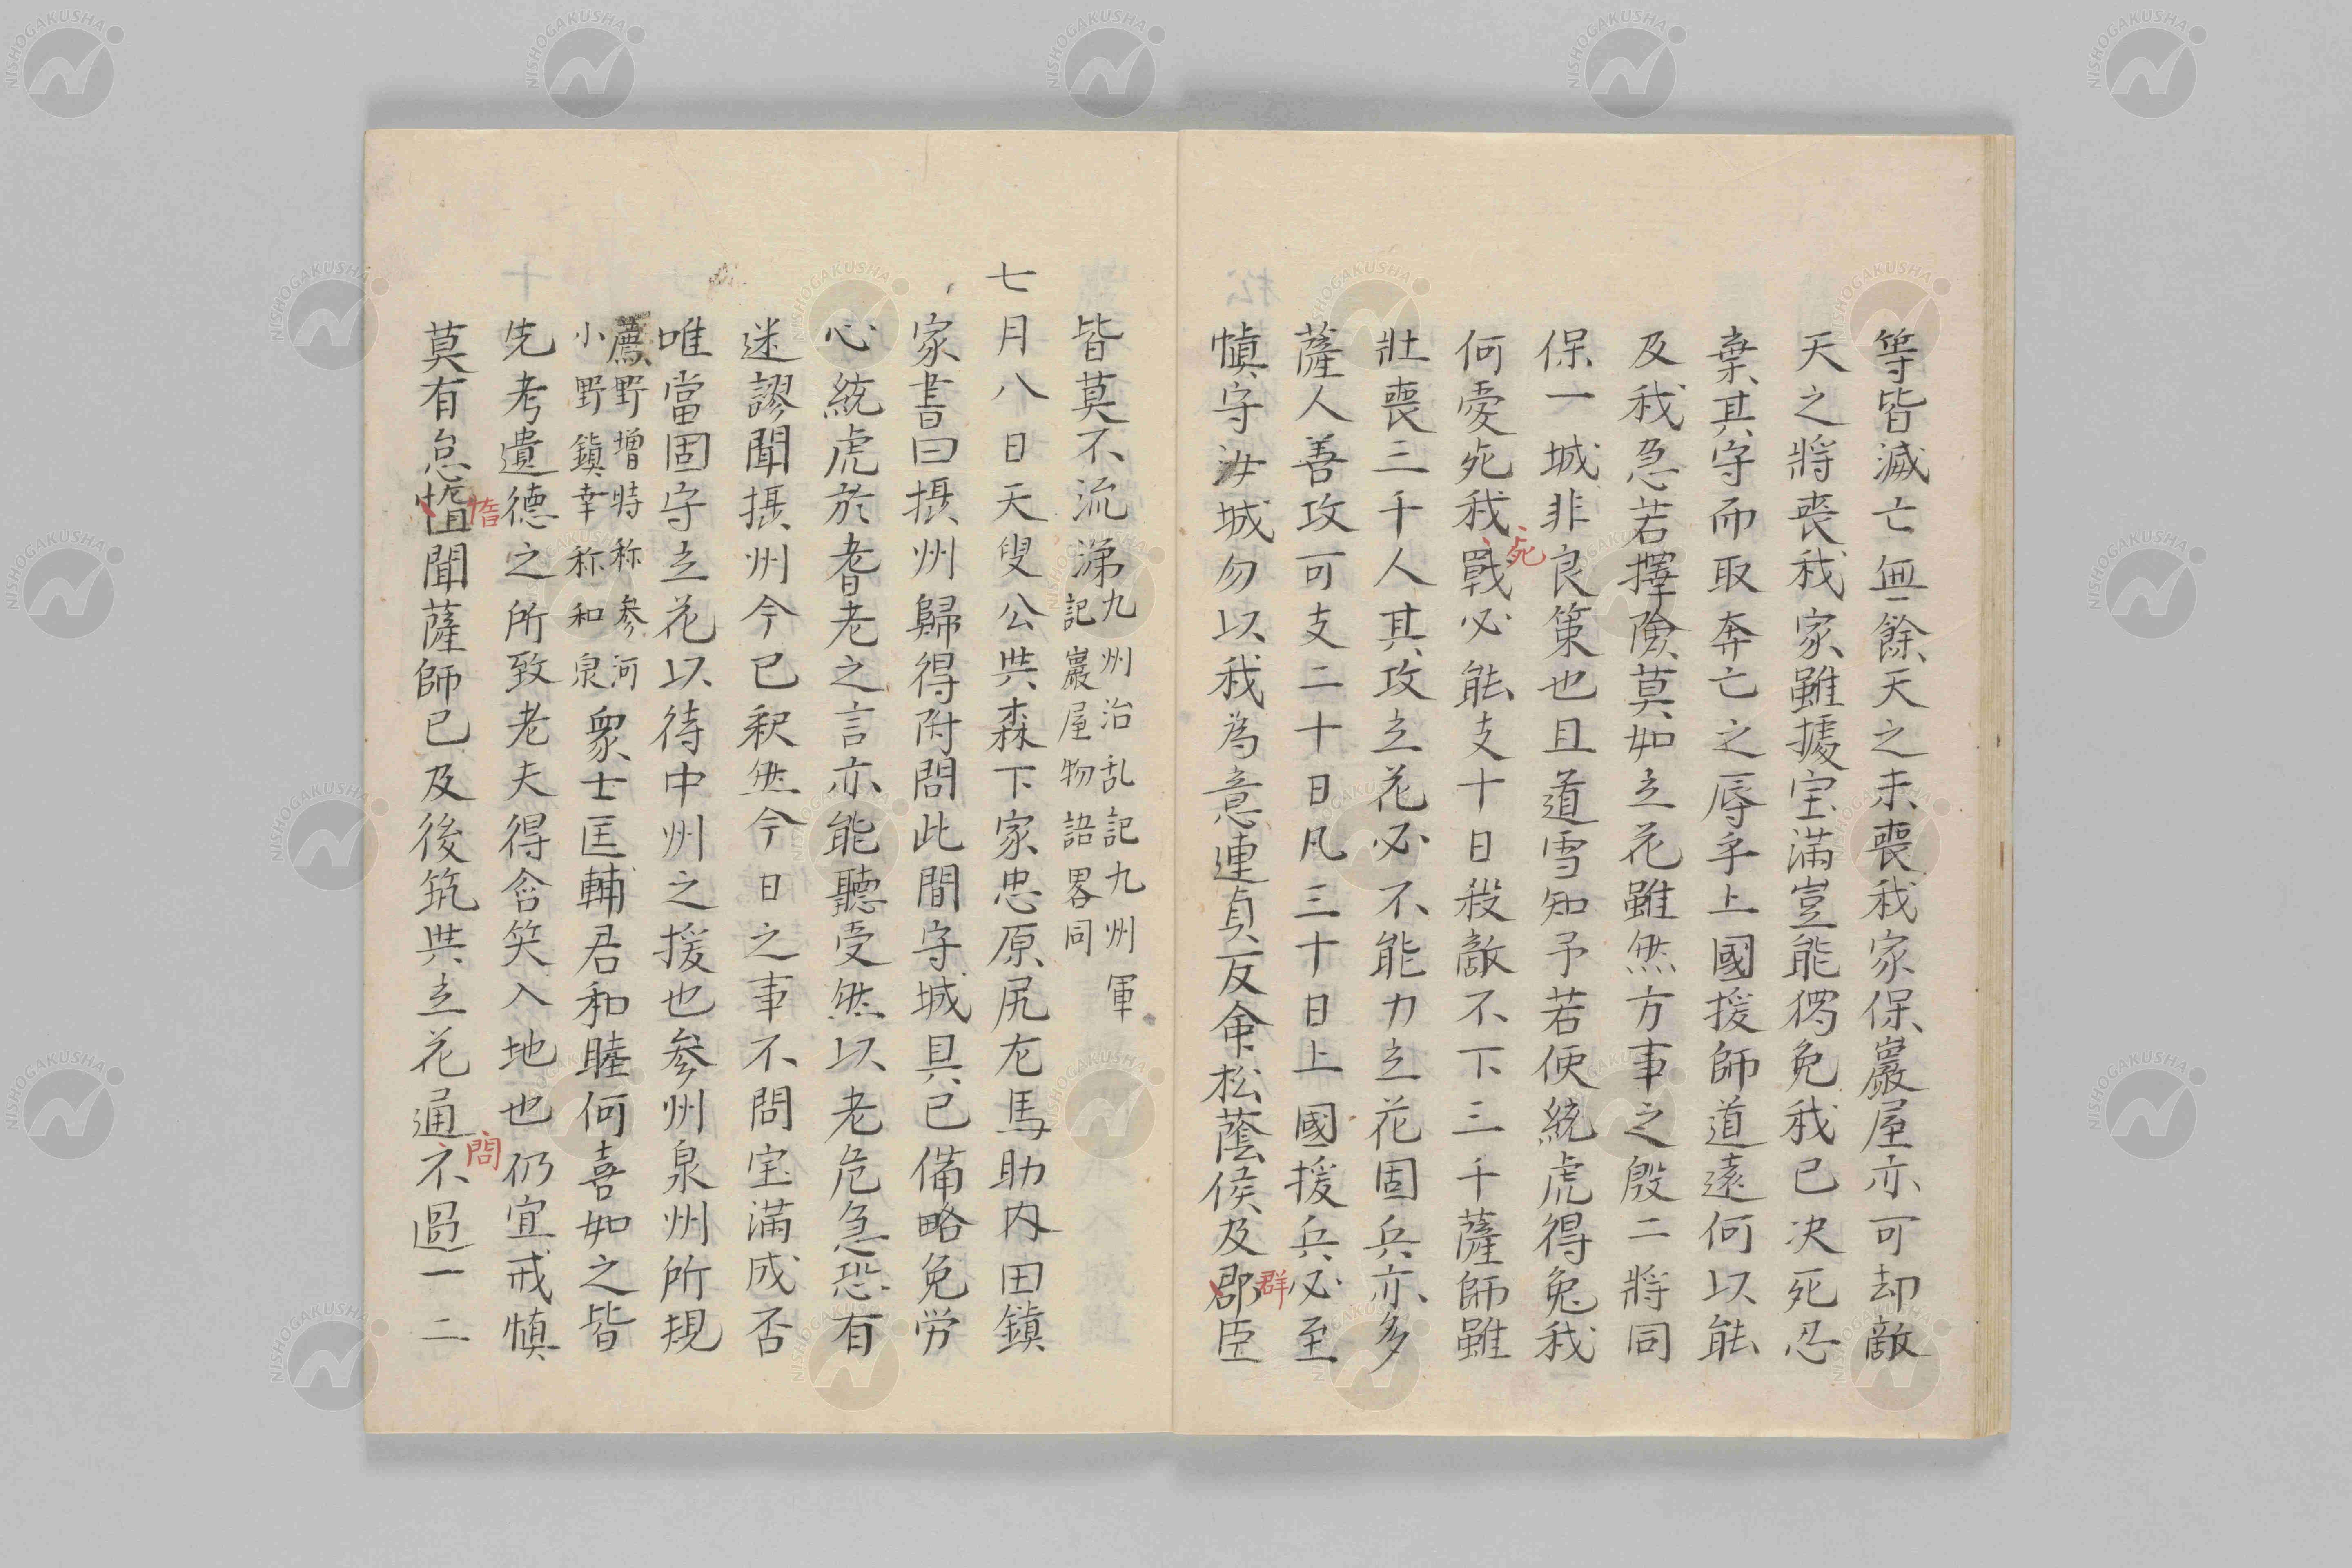 等皆滅亡無餘天之未喪我家保巖屋亦可却敵
天之將喪我家雖據宝滿豈能獨免我已决死忍
棄其守而取奔亡之辱乎上國援師道遠何以能
及我急若擇險莫如立花雖然方事之殷二將同
保一城非良策也且道雪知予若使統虎得兔我
何愛死我戰死必能支十日殺敵不下三千薩師雖
壯喪三千人其攻立花必不能力立花固兵亦多
薩人善攻可支二十日凡三十日上國援兵必至
慎守汝城勿以我為意連貞反命松蔭侯及郡群臣
皆莫不流涕九州治乱記九州軍
記巖屋物語畧同
七月八日天叟公與森下家忠原尻左馬助内田鎮
家書曰摂州歸得附問此間守城具已備略免労
心統虎於耆老之言亦能聽受然以老危急恐有
迷謬聞摂州今已釈然今日之事不問宝滿成否
唯當固守立花以待中州之援也参州泉州所規
薦野增時称参河
小野鎮幸称和泉衆士匡輔君和睦何喜如之皆
先考遺德之所致老夫得含笑入地也仍宜戒慎
莫有怠惰聞薩師已及後筑與立花通問不過一二